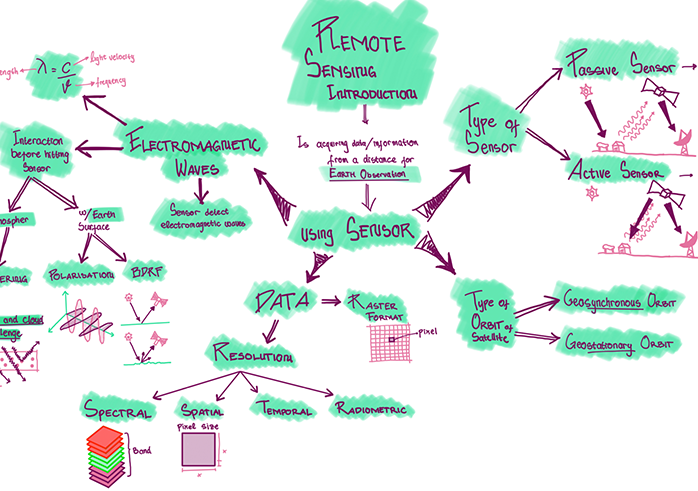 REMOTE
SENSING
INTRODUCTION
Is acquiring data/information
from a distance for
EARTH OBSERVATION
using SENSOR
λ = c
ν
light velocity
frequency
ELECTROMAGNETIC
WAVES
Sensor detect
electromagnetic waves
Interaction
before hitting
Sensor
w/ Earth
Surface
POLARISATION
BDRF
and cloud
Type of
SENSOR
PASSIVE SENSOR
ACTIVE SENSOR
Type of
ORBIT of
Satellite
GEOSYNCHRONOUS ORBIT
GEOSTATIONARY ORBIT
DATA
RASTER
FORMAT
pixel
RESOLUTION
SPECTRAL
Band
SPATIAL
pixel size
x
x
TEMPORAL
RADIOMETRIC